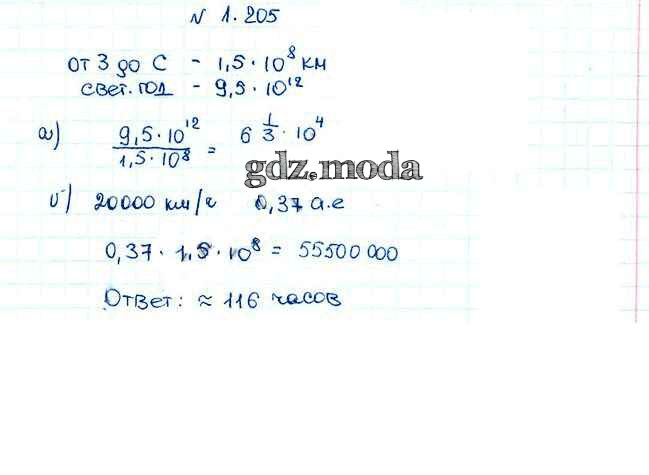 N 1.205
от З до С - 1,5 · 10⁸ км
свет. год - 9,5 · 10¹²
а) 9,5 · 10¹² / 1,5 · 10⁸ = 6 1/3 · 10⁴
gdz.moda
б) 20000 км/ч 0,37 а.е
0,37 · 1,5 · 10⁸ = 55500 000
Ответ: ≈ 116 часов